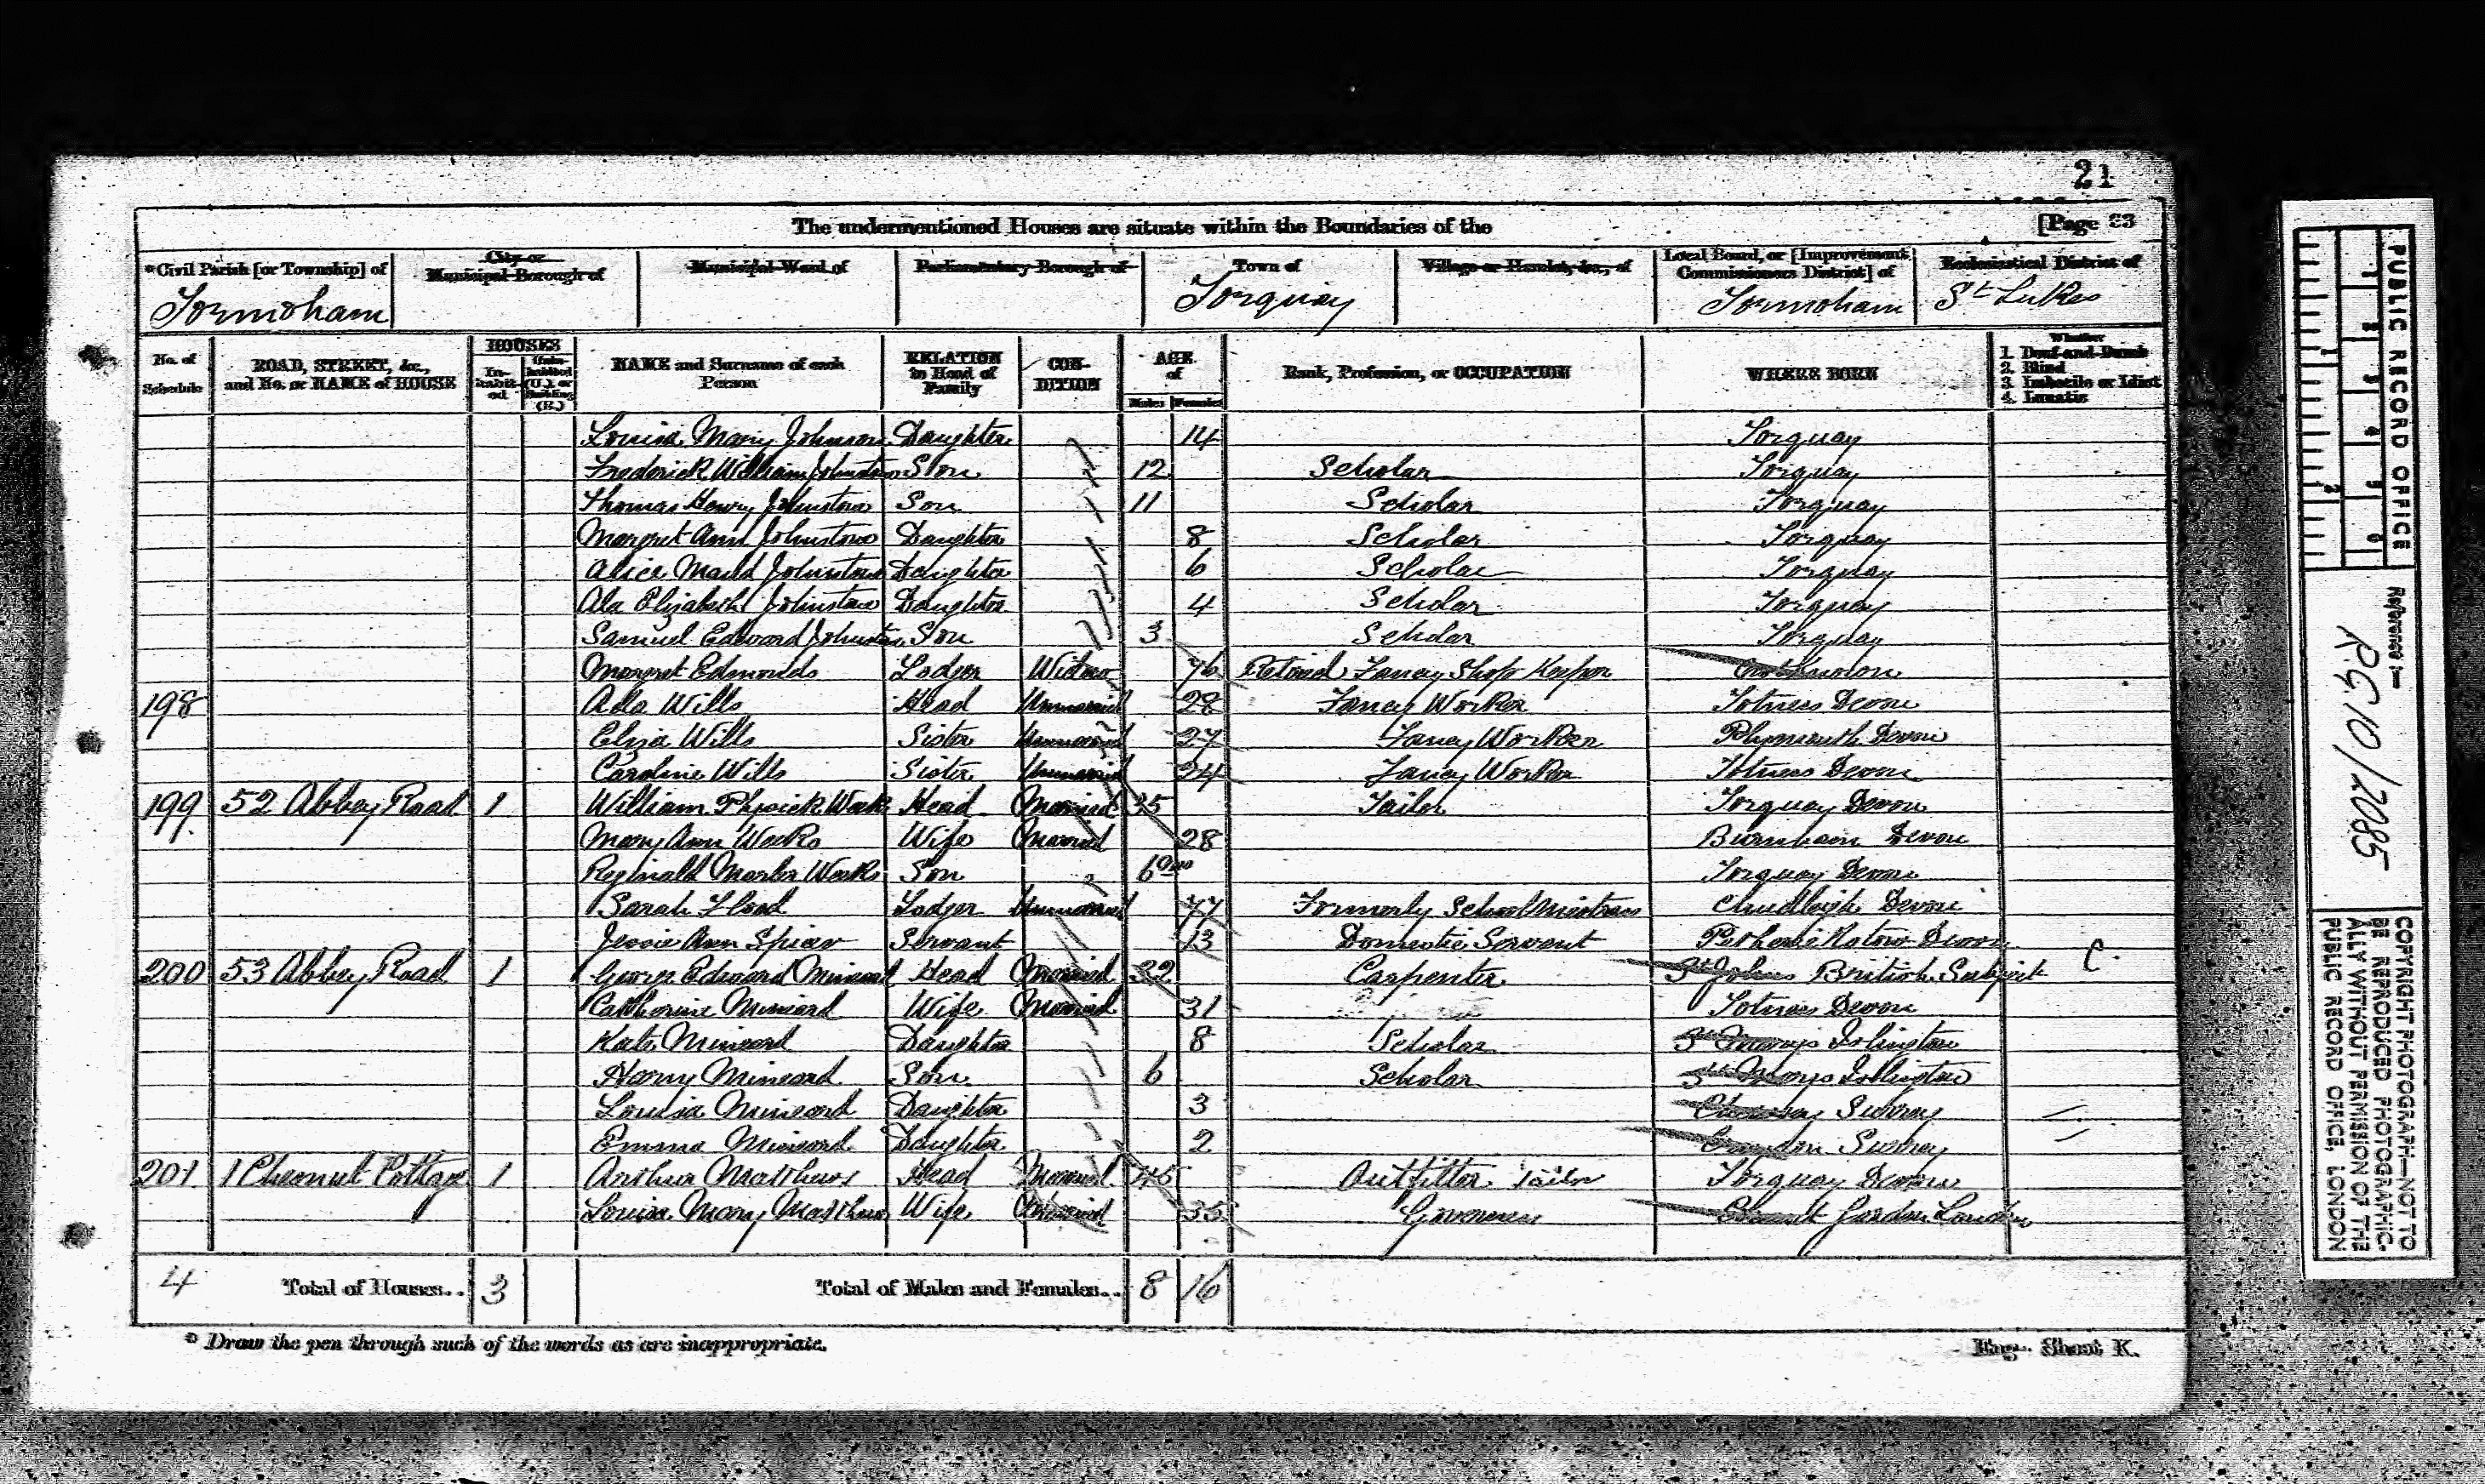 21
The undermentioned Houses are situate within the Boundaries of the [Page 33
*Civil Parish [or Township] of | City or Municipal Borough of | Municipal Ward of | Parliamentary Borough of | Town of | Village or Hamlet, &c., of | Local Board, or [Improvement Commissioners District] of | Ecclesiastical District of
Tormoham | Torquay | Tormoham | St Lukes
No. of Schedule | ROAD, STREET, &c., and No. or NAME of HOUSE | HOUSES Inhabited | Uninhabited (U.), or Building (B.) | NAME and Surname of each Person | RELATION to Head of Family | CONDITION | AGE of Males | Females | Rank, Profession, or OCCUPATION | WHERE BORN | Whether 1. Deaf-and-Dumb 2. Blind 3. Imbecile or Idiot 4. Lunatic
Louisa Mary Johnson Daughter 14 Torquay
Frederick William Johnstone Son 12 Scholar Torquay
Thomas Henry Johnstone Son 11 Scholar Torquay
Margret Ann Johnstone Daughter 8 Scholar Torquay
Alice Maud Johnstone Daughter 6 Scholar Torquay
Ada Elizabeth Johnstone Daughter 4 Scholar Torquay
Samuel Edward Johnstone Son 3 Scholar Torquay
Margret Edmonds Lodger Widow 76 Retired Fancy Shop Keeper
198 Ada Wills Head Unmarried 28 Fancy Worker Totnes Devon
Eliza Wills Sister Unmarried 27 Fancy Worker Plymouth Devon
Caroline Wills Sister Unmarried 24 Fancy Worker Totnes Devon
199 52 Abbey Road 1 William Physick Weeks Head Married 35 Tailor Torquay Devon
Mary Ann Weeks Wife Married 28 Devon
Reginald Weeks Son 6 mo Torquay Devon
Sarah Flood Lodger Unmarried 77 Formerly School Mistress Chudleigh Devon
Jessie Ann Spicer Servant 13 Domestic Servant Devon
200 53 Abbey Road 1 George Edward Mineard Head Married 32 Carpenter St Johns British Subject C.
Catherine Mineard Wife Married 31 Totnes Devon
Kate Mineard Daughter 8 Scholar St Marys Islington
Harry Mineard Son 6 Scholar St Marys Islington
Louisa Mineard Daughter 3 Surrey
Emma Mineard Daughter 2 Croydon Surrey
201 1 Chesnut Cottage 1 Arthur Matthews Head Married 45 Outfitter Tailor Torquay Devon
Louisa Mary Matthews Wife Married 35 Governess Garden London
4 Total of Houses.. 3 Total of Males and Females.. 8 16
* Draw the pen through such of the words as are inappropriate.
Eng.- Sheet K.
PUBLIC RECORD OFFICE
1 2 3 4 5 6
1 2
Reference:-
R.G. 10/2085
COPYRIGHT PHOTOGRAPH—NOT TO
BE REPRODUCED PHOTOGRAPHIC-
ALLY WITHOUT PERMISSION OF THE
PUBLIC RECORD OFFICE, LONDON